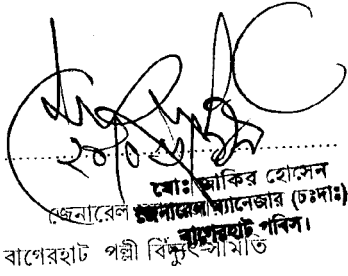 মো: জাকির হোসেন
জেনারেল ম্যানেজার (চ:দা:)
বাগেরহাট পবিস।
জেনারেল
বাগেরহাট পল্লী বিদ্যুৎ সমিতি